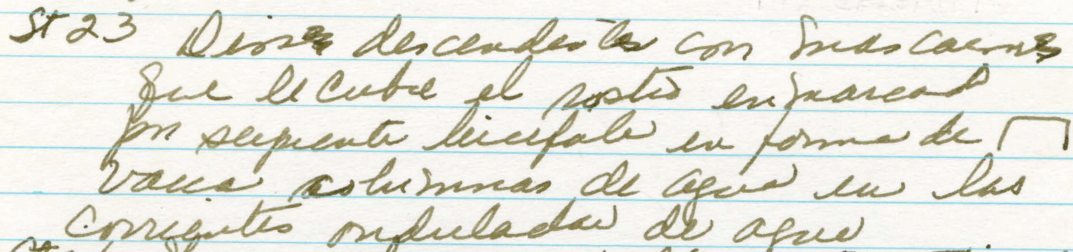 St 23 Dioses descendentes con mascarones
que le cubre el rostro enmarcad
por serpiente bicefala en forma de
columnas de agua en las
corrientes onduladas de agua